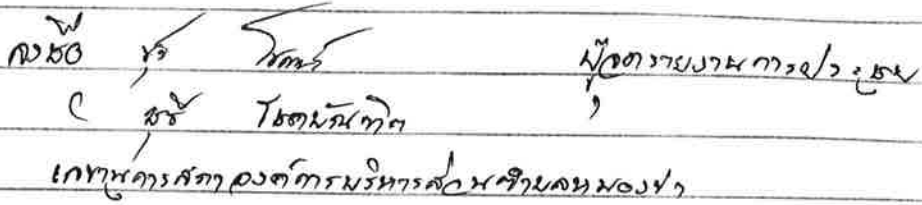 ลงชื่อ ผู้จดรายงานการประชุม
( โชติบัณฑิต )
เลขานุการสภาองค์การบริหารส่วนตำบลหนองขำ